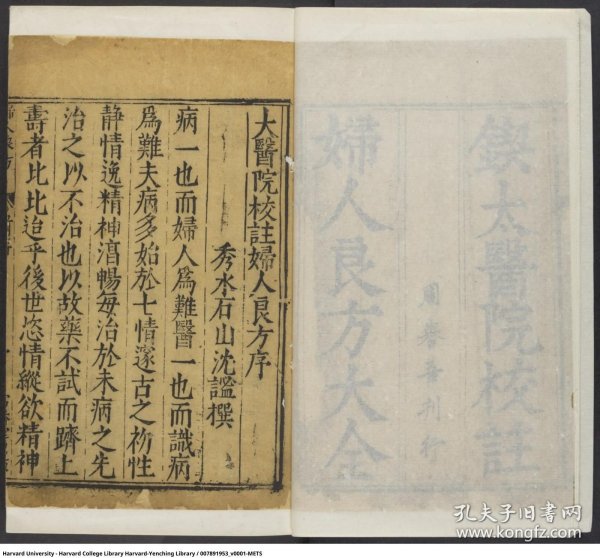 鍥太醫院校註
婦人良方大全
周春臺刊行
大醫院校註婦人良方序
秀水石山沈謐撰
病一也而婦人爲難醫一也而識病
爲難夫病多始於七情邃古之初性
静情逸精神湻暢每治於未病之先
治之以不治也以故藥不試而躋上
壽者比比迨乎後世恣情縱欲精神
孔夫子旧书网
www.kongfz.com
Harvard University - Harvard College Library Harvard-Yenching Library / 007891953_v0001-METS